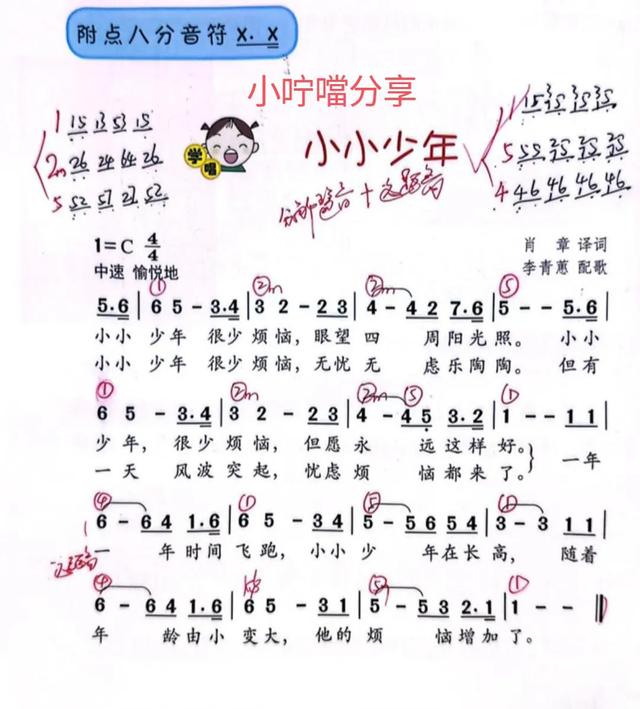 附点八分音符 x. x
小咛噹分享
1 15 13 53 15
2m 26 24 64 26
5 52 57 27 52
学唱
小小少年
1 15 35 35 35
5 55 25 25 25
4 46 46 46 46
1=C 4/4
中速 愉悦地
肖 章 译词
李青蕙 配歌
① ②m ②m ⑤
5.6 | 6 5 - 3.4 | 3 2 - 2 3 | 4 - 4 2 7.6 | 5 - - 5.6 |
小小 少年 很少 烦恼，眼望 四 周阳光照。 小小
小小 少年 很少 烦恼，无忧 无 虑乐陶陶。 但有
① ②m ②m ⑤ ①
6 5 - 3.4 | 3 2 - 2 3 | 4 - 4 5 3.2 | 1 - - 1 1 |
少年， 很少 烦恼， 但愿 永 远这样好。 一年
一天 风波 突起， 忧虑 烦 恼都来了。
④ ① ⑤ ①
6 - 6 4 1.6 | 6 5 - 3 4 | 5 - 5 6 5 4 | 3 - 3 1 1 |
一 年时间 飞跑， 小小 少 年在长 高， 随着
④ ⑤ ①
6 - 6 4 1.6 | 6 5 - 3 1 | 5 - 5 3 2.1 | 1 - -
年 龄由小 变大， 他的 烦 恼增加 了。